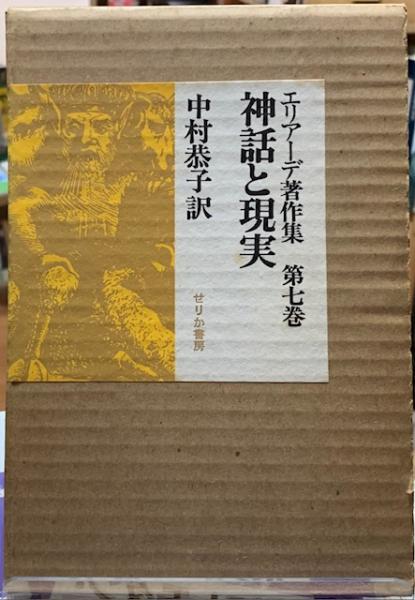 エリアーデ著作集　第七巻
神話と現実
中村恭子訳
せりか書房